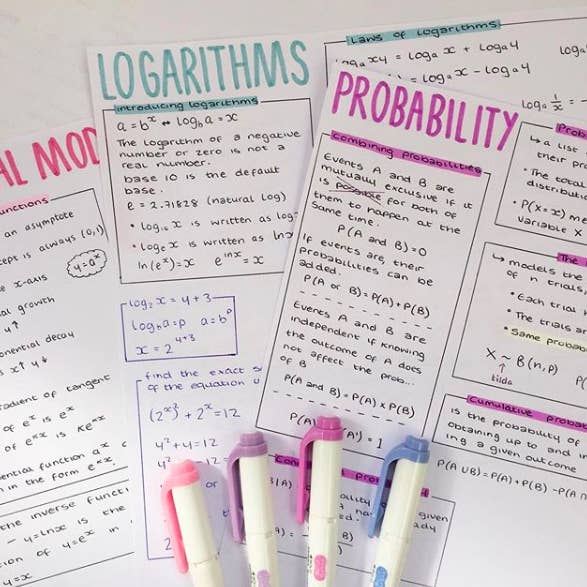 LOGARITHMS
introducing logarithms
a = b^x ↔ log_b a = x
The logarithm of a negative
number or zero is not a
real number.
base 10 is the default
base.
e = 2.71828 (natural log)
• log₁₀ x is written as log
• log_e x is written as ln x
ln(e^x) = x e^(ln x) = x
log₂ x = y + 3
log_b a = p a = b^p
x = 2^(y+3)
find the exact
of the equation
(2^(x²)) + 2^x = 12
y² + y = 12
y²
or
2
Laws of logarithms
log_a xy = log_a x + log_a y
= log_a x - log_a y
log_a 1/x =
PROBABILITY
combining probabilities
Events A and B are
mutually exclusive if it
is possible for both of
them to happen at the
same time.
P(A and B) = 0
If events are, their
probabilities can be
added.
P(A or B) = P(A) + P(B)
Events A and B are
independent if knowing
the outcome of A does
not affect the prob...
of B
P(A and B) = P(A) x P(B)
= 1
given
↳ a list
their pro
• The total
distributi
• P(X = x) me
variable X
The
↳ models the
of n trials,
• Each trial
• The trials a
• Same probab
X ~ B(n, p)
↑
tilda
Cumulative probab
is the probability of
obtaining up to and in
ing a given outcome
P(A∪B) = P(A) + P(B) - P(A
AL MOD
functions
an asymptote
cept is always (0,1)
y = a^x
x-axis
al growth
y↑
onential decay
x↑ y↓
radient of tangent
of e^x is e^x
of e^kx is ke^kx
ential function a^x
in the form e^kx.
the inverse functi
y = ln x is the
tion of y = e^x in
y = x